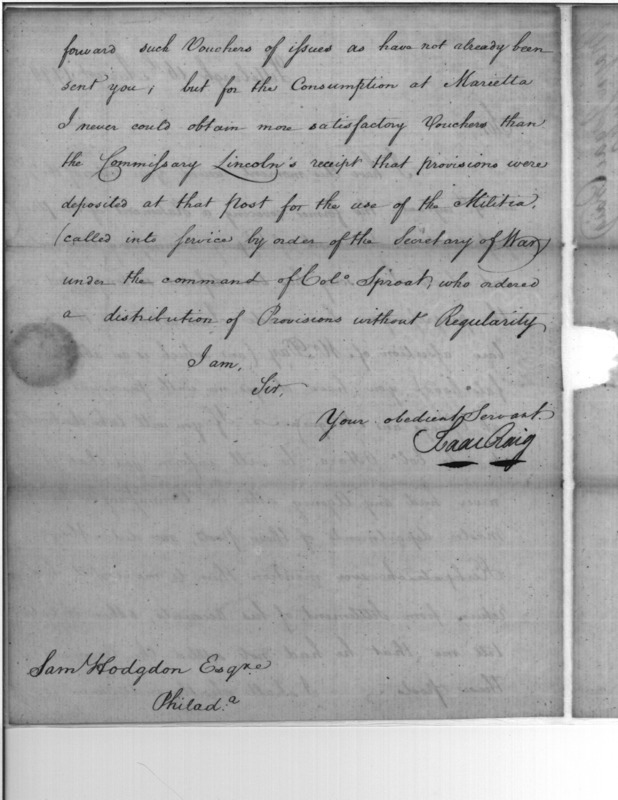 forward such Vouchers of issues as have not already been
sent you; but for the Consumption at Marietta
I never could obtain more satisfactory Vouchers than
the Commissary Lincoln's receipt that provisions were
deposited at that Post for the use of the Militia,
(called into service by order of the Secretary of War)
under the command of Colo Sproat, who ordered
a distribution of Provisions without Regularity,
I am,
Sir,
Your obedient Servant.
Isaac Craig
Saml Hodgdon Esqre
Philada